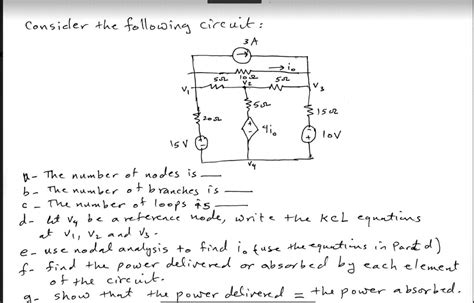 Consider the following circuit:
3A
→ i₀
10Ω
V₁ 5Ω V₂ 5Ω V₃
20Ω 5Ω 15Ω
4i₀
15V 10V
V₄
a- The number of nodes is __
b- The number of branches is __
c- The number of loops is __
d- let V₄ be a reference node, write the KCL equations
at V₁, V₂ and V₃.
e- use nodal analysis to find i₀ (use the equations in Part d)
f- find the power delivered or absorbed by each element
of the circuit.
g- show that the power delivered = the power absorbed.